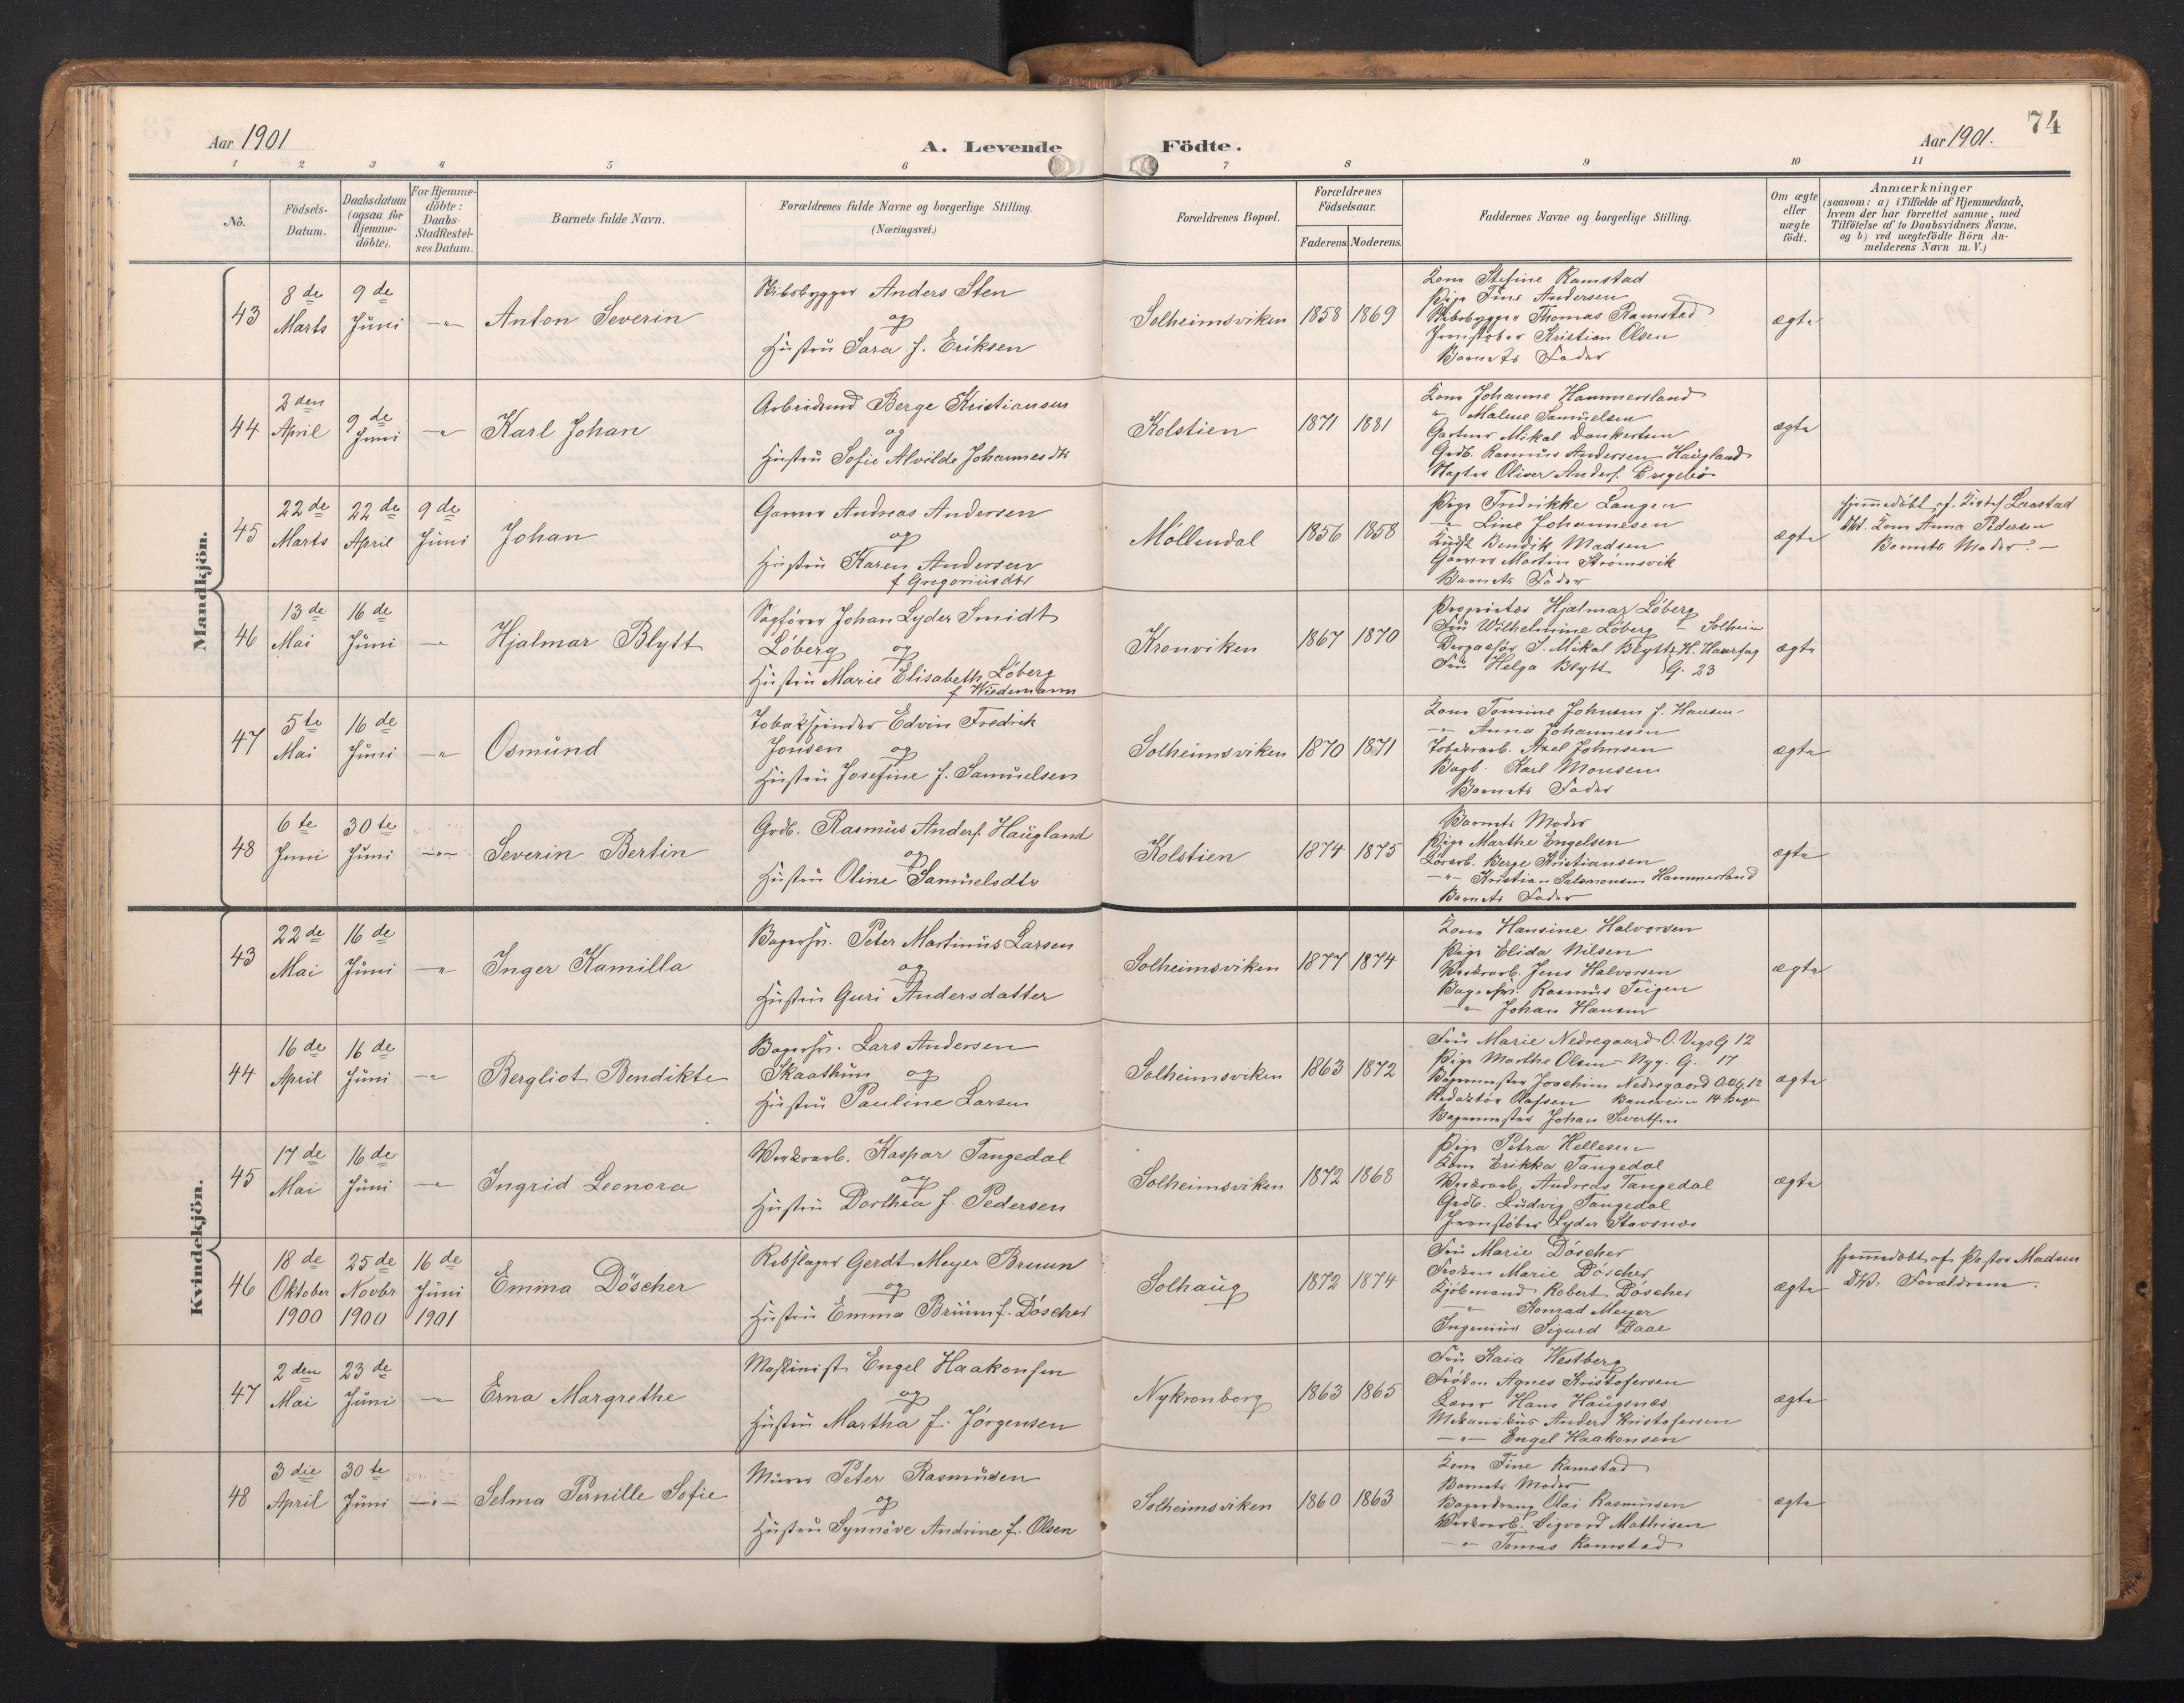 Aar 1901
A. Levende Födte.
Aar 1901.
74
1 2 3 4 5 6 7 8 9 10 11
No.
Födsels-Datum.
Daabsdatum (ogsaa for Hjemme-döbte).
For Hjemme-döbte: Daabs-Stadfæstel-ses Datum.
Barnets fulde Navn.
Forældrenes fulde Navne og borgerlige Stilling. (Næringsvei.)
Forældrenes Bopæl.
Forældrenes Födselsaar.
Faderens. Moderens.
Faddernes Navne og borgerlige Stilling.
Om ægte eller uægte födt.
Anmærkninger
(saasom: a) i Tilfælde af Hjemmedaab,
hvem der har forrettet samme, med
Tilföielse af to Daabsvidners Navne.
og b) ved uægtefödte Börn An-
melderens Navn m. V.)
Mandkjön.
43
8de Marts
9de Juni
-"-
Anton Severin
Skibsbygger Anders Sten
og
Hustru Sara f. Eriksen
Solheimsviken
1858 1869
Kone Stefine Ramstad
Pige Tine Andersen
Skibsbygger Thomas Ramstad
Jernstøber Kristian Olsen
Barnets Fader
ægte
44
2den April
9de Juni
-"-
Karl Johan
Arbeidsmd Berge Kristiansen
og
Hustru Sofie Alvilde Johannesdtr
Kolstien
1871 1881
Kone Johanne Hammersland
" Malene Samuelsen
Gartner Mikal Dankertsen
Grdb. Rasmus Andersen Haugland
Slagter Oliver Anders.
ægte
45
22de Marts
22de April
9de Juni
Johan
Garver Andreas Andersen
og
Hustru Karen Andersen
f Gregoriusdtr
Møllendal
1856 1858
Pige Fredrikke Langen
-"- Line Johannesen
Kudsk Bendik Madsen
Garver Martin Strømsvik
Barnets Fader
ægte
Hjemmedöbt af
Dkv. Kone Anna Pedersen
Barnets Moder. -
46
13de Mai
16de Juni
-"-
Hjalmar Blytt
Sagfører Johan Lyder Smidt
Löberg og
Hustru Marie Elisabeth Löberg
f Wiedemann
Kronviken
1867 1870
Proprietær Hjalmar Löberg
Fru Wilhelmine Löberg - Solheim
Dispachör S. Mikal Blytt H. Haarfag
Fru Helga Blytt G. 23
ægte
47
5te Mai
16de Juni
-"-
Osmund
Tobakspinder Edvin Fredrik
Jonsen og
Hustru Josefine f. Samuelsen
Solheimsviken
1870 1871
Kone Tomine Johnsen f. Hansen
-"- Anna Johannesen
Tobaksarb. Axel Johnsen
Bogb. Karl Monsen
Barnets Fader
ægte
48
6te Juni
30te Juni
-"-
Severin Bertin
Grdb. Rasmus Anders. Haugland
og
Hustru Oline Samuelsdtr
Kolstien
1874 1875
Barnets Moder
Pige Marthe Engelsen
Berge Kristiansen
-"- Kristian Salomonsen Hammersland
Barnets Fader
ægte
Kvindekjön.
43
22de Mai
16de Juni
-"-
Inger Kamilla
Bagersv. Peter Martinus Larsen
og
Hustru Guri Andersdatter
Solheimsviken
1877 1874
Kone Hansine Halvorsen
Pige Elida Nilsen
Verksarb. Jens Halvorsen
Bagersv. Rasmus Teigen
-"- Johan Hansen
ægte
44
16de April
16de Juni
-"-
Bergliot Bendikte
Bagersv. Lars Andersen
Skaathun og
Hustru Pauline Larsen
Solheimsviken
1863 1872
Fru Marie Nedregaard O. Vegs G 12
Pige Marthe Olsen - Nyg. G. 17
Bagermester Joachim Nedregaard O.V.G. 12
Redaktör Olafsen Baneveien 14 Bergen
Bagermester Johan Sivertsen
ægte
45
17de Mai
16de Juni
-"-
Ingrid Leonora
Verksarb. Kaspar Tangedal
og
Hustru Dorthea f. Pedersen
Solheimsviken
1872 1868
Pige Petra Hellesen
Kone Erikka Tangedal
Verksarb. Andreas Tangedal
Grdb. Ludvig Tangedal
Jernstöber Lyder Stavsnæs
ægte
46
18de Oktober 1900
25de Novbr 1900
16de Juni 1901
Emma Döscher
Rebslager Gerdt Meyer Bruun
og
Hustru Emma Bruun f. Döscher
Solhaug
1872 1874
Fru Marie Döscher
Froken Marie Döscher
Kjöbmand Robert Döscher
-"- Konrad Meyer
Ingeniør Sigurd Daae
ægte
Hjemmedöbt af Pastor Madsen
Dkv. Forældrene.
47
2den Mai
23de Juni
-"-
Erna Margrethe
Maskinist Engel Haakonsen
og
Hustru Martha f. Jörgensen
Nykronborg
1863 1865
Fru Kaia Westberg
Fröken Agnes Kristofersen
Lærer Hans Haugsnæs
Mekanikus Anders Kristofersen
-"- Engel Haakonsen
ægte
48
3die April
30te Juni
-"-
Selma Pernille Sofie
Murer Peter Rasmussen
og
Hustru Synnöve Andrine f. Olsen
Solheimsviken
1860 1863
Kone Tine Ramstad
Barnets Moder
Bagerdreng Olai Rasmussen
Verksarb. Sigvard Mathisen
-"- Tomas Ramstad
ægte